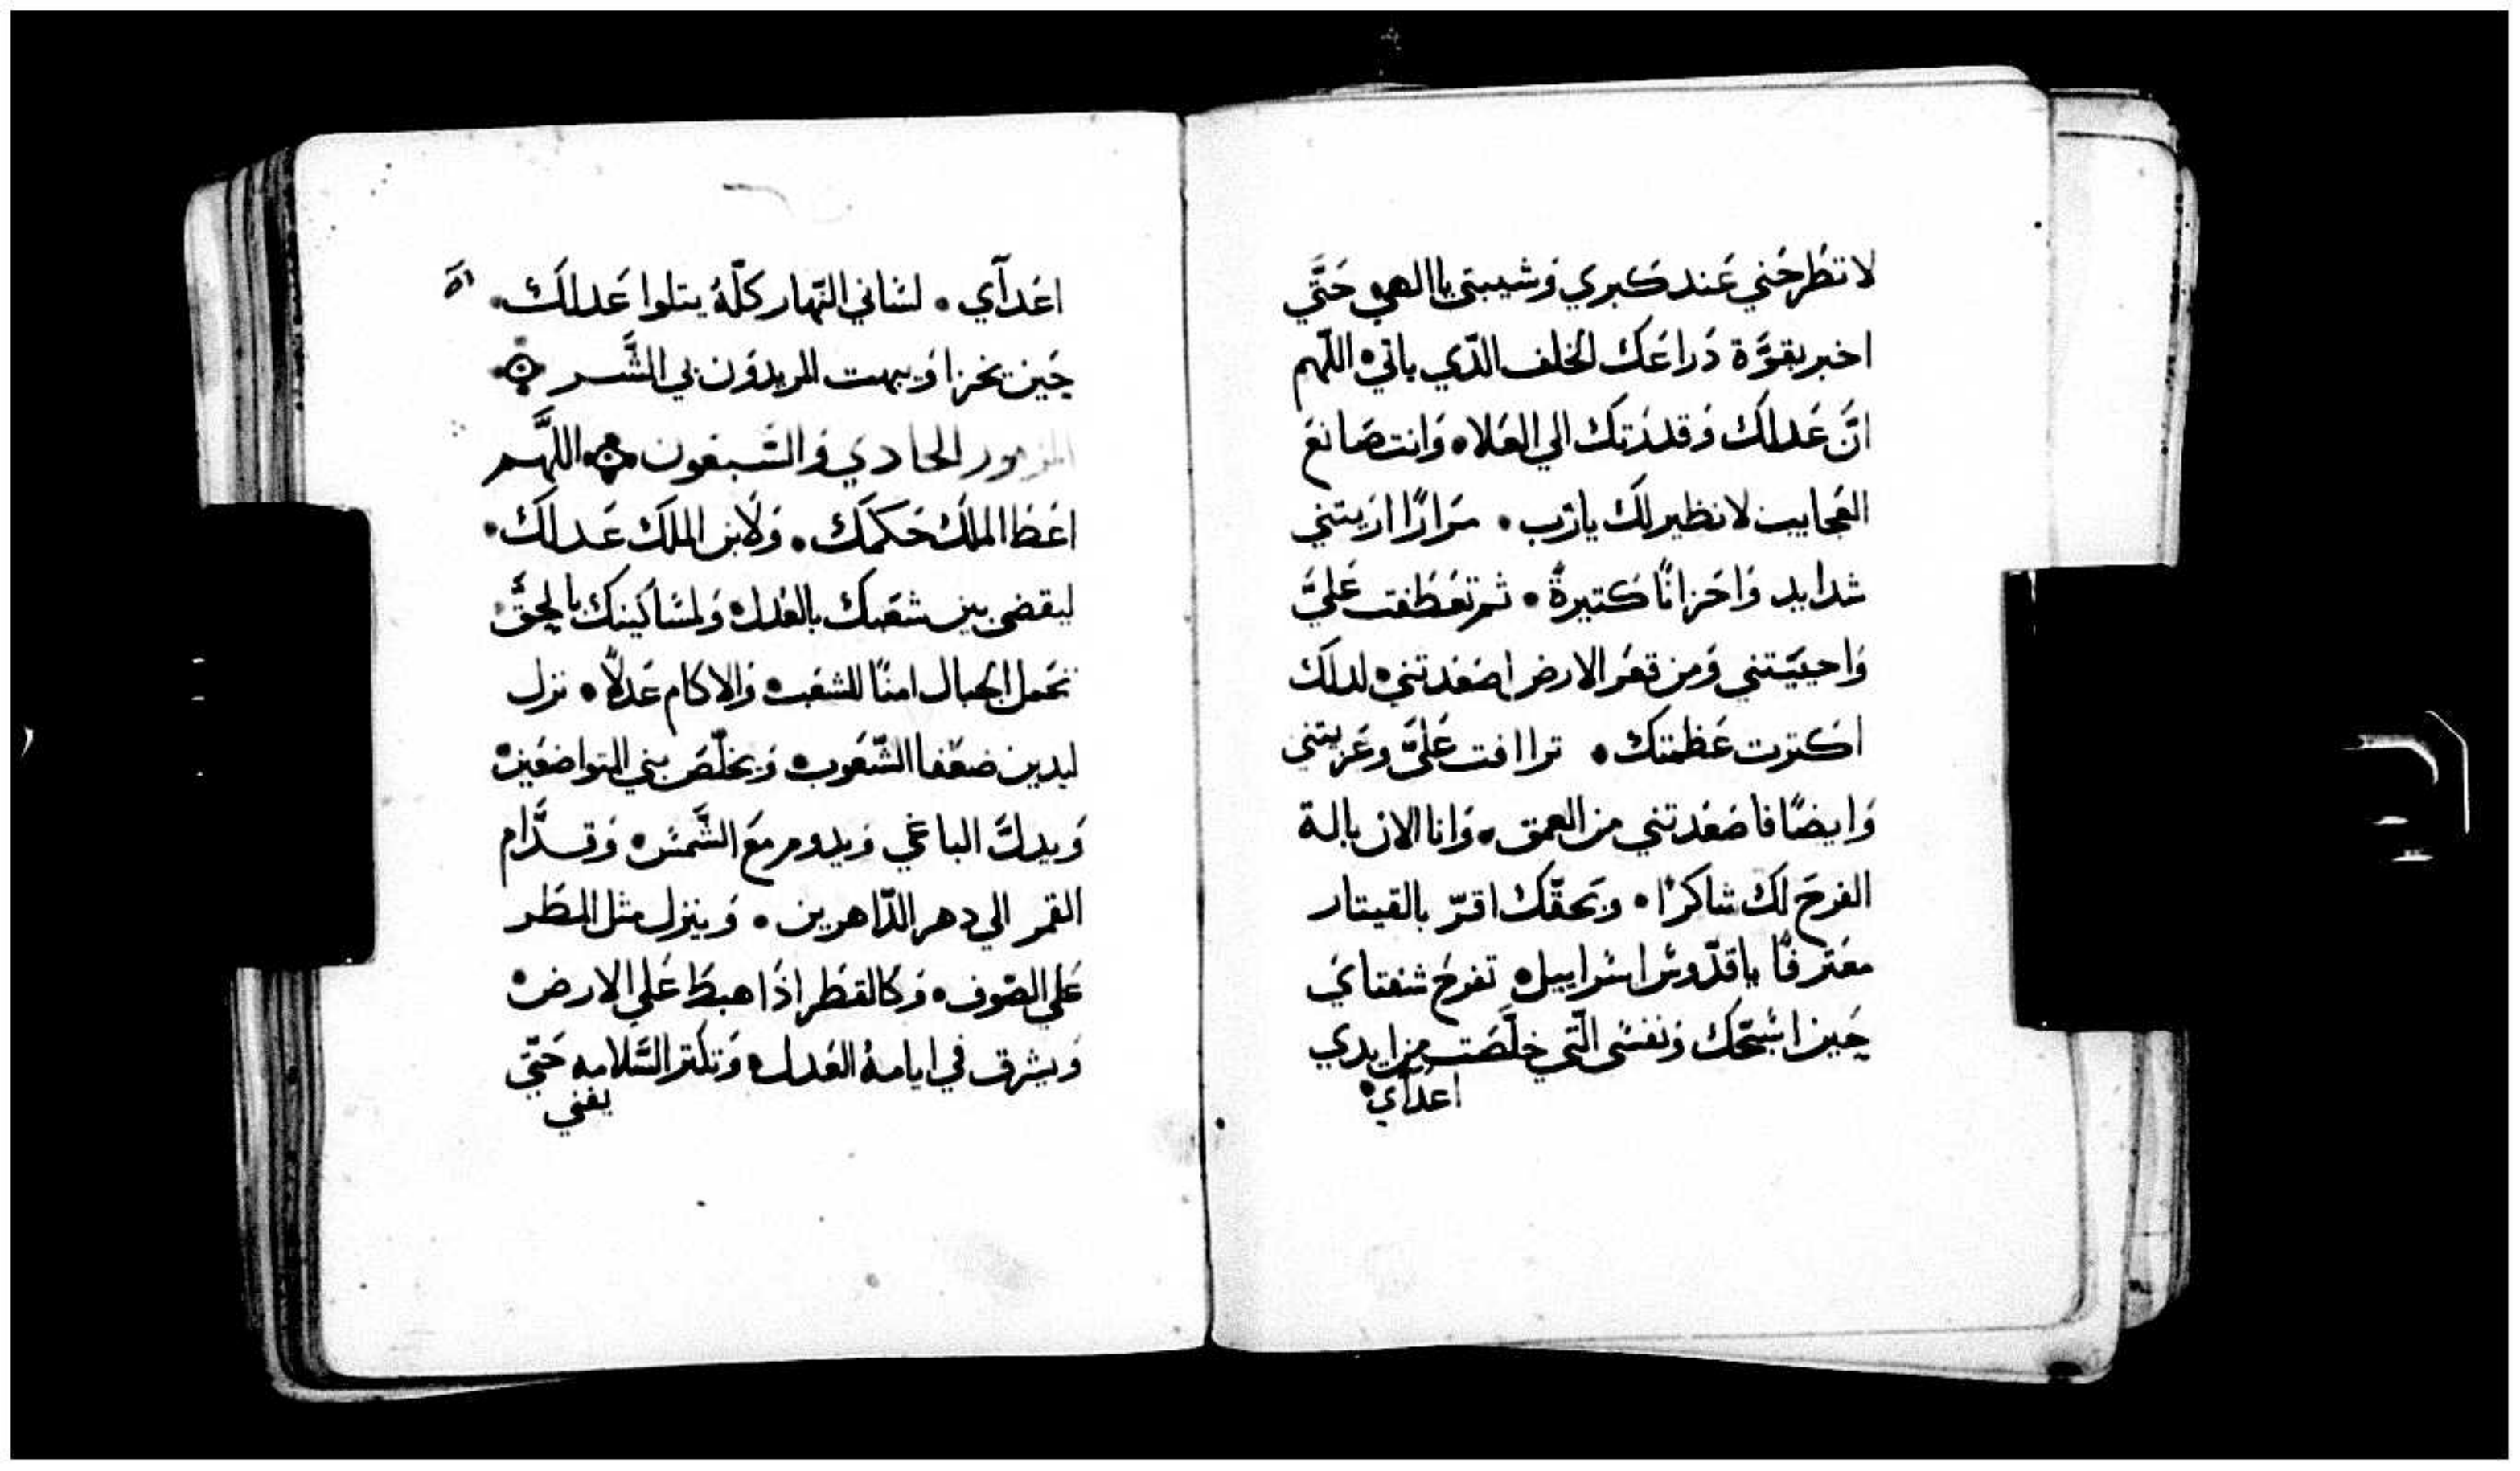 لا تطْرحُني عَند كبري وَشيبتي ياالهي حَتَّي
اخبر بقوَّة دَراعَك الخلف الدّي ياتي• اللّهم
انَّ عَدلك وَقدرَتك الي العَلا• وَانت صَانعَ
العَجاييب لا نظير لك يارَب • مَرارًا ارَيتني
شدايد وَاحَزانًا كتيرةً • ثم تعَطَفت عَليَّ
وَاحييَتني وَمن قعَر الارض اصَعَدتني• لدلك
اكترت عَظمتك • تراافت عَليَّ وعَزيتني
وَايضًا فاصَعَدتني من العمق •وَانا الان بالة
الفرحَ لك شاكرًا • وَبحَقّك اقرّ بالقيتار
معَترفًا ياقدّوسَ اسَراييل• تفرحَ شفتايَ
حَين اسَبّحَك وَنفسَي الّتي خلَّصَت من ايدي
اعَدآي•
اعَدآي • لسَاني النّهار كلّهُ يتلوا عَدلك •
حَين يخزا وَيبهت المريدوَن بي الشَّر
المزمور الحادي وَالسَّبعَون • اللَّهم
اعَطا الملك حَكمك • وَلابن الملك عَدلك •
ليقضي بين شعَبك بالعَدل• وَلمسَاكينك بالحَقَّ•
تحَمل الجبال امنًا للشعَب• وَالاكام عَدلاً • نزل
ليدين ضعَفا الشّعَوب• وَيخلّصَ بني المتواضعَين•
وَيدلَّ الباغي وَيدوم معَ الشَّمسَ• وَقدَّام
القمر الي دهر الدّاهرين • وَينزل مثل المطَر
عَلي الصَوف• وَكالقطَر اذَا هبطَ عَلي الارض•
وَيشرق في ايامهُ العَدل• وَتكتر السَّلامه حَتّي
يفني